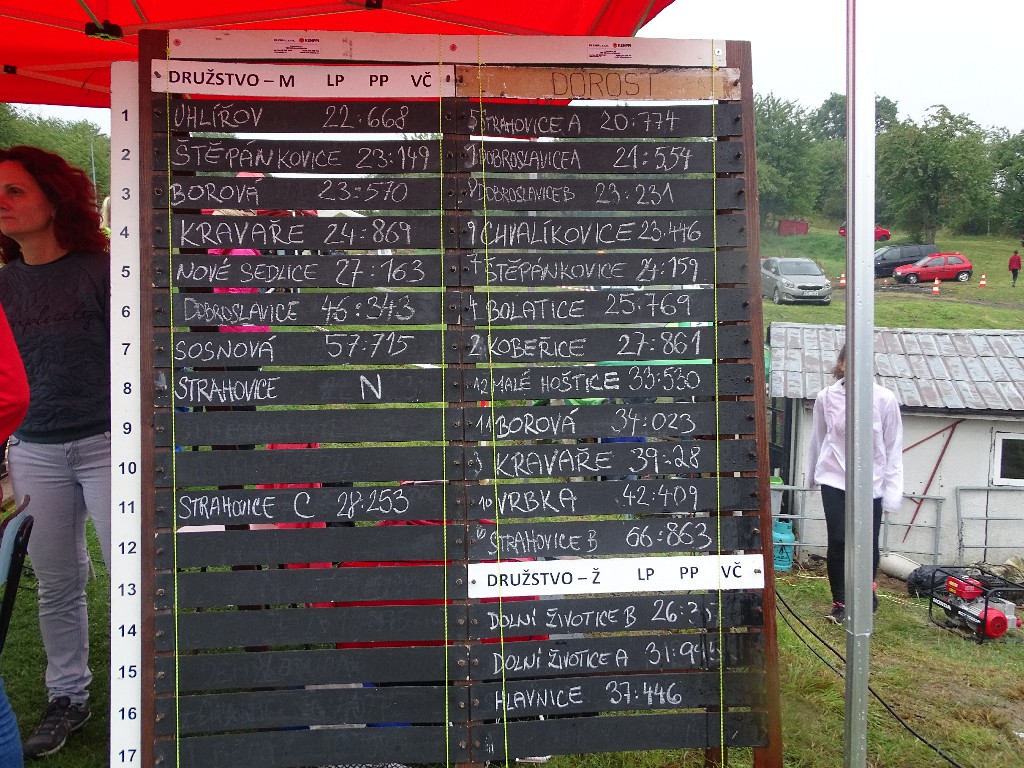 DRUŽSTVO – M LP PP VČ
1 UHLÍŘOV 22:668
2 ŠTĚPÁNKOVICE 23:149
3 BOROVÁ 23:570
4 KRAVAŘE 24:869
5 NOVÉ SEDLICE 27:163
6 DOBROSLAVICE 45:343
7 SOSNOVÁ 57:715
8 STRAHOVICE N
9
10
11 STRAHOVICE C 28:253
12
13
14
15
16
17
DOROST
STRAHOVICE A 20:774
DOBROSLAVICE A 21:554
DOBROSLAVICE B 23:231
9 CHVALÍKOVICE 23.446
7 ŠTĚPÁNKOVICE 24:159
4 BOLATICE 25.769
2 KOBEŘICE 27:861
12 MALÉ HOŠTICE 33:530
11 BOROVÁ 34:023
3 KRAVAŘE 39:28
10 VRBKA 42:409
STRAHOVICE B 66:863
DRUŽSTVO – Ž LP PP VČ
DOLNÍ ŽIVOTICE B
DOLNÍ ŽIVOTICE A
HLAVNICE 37:446